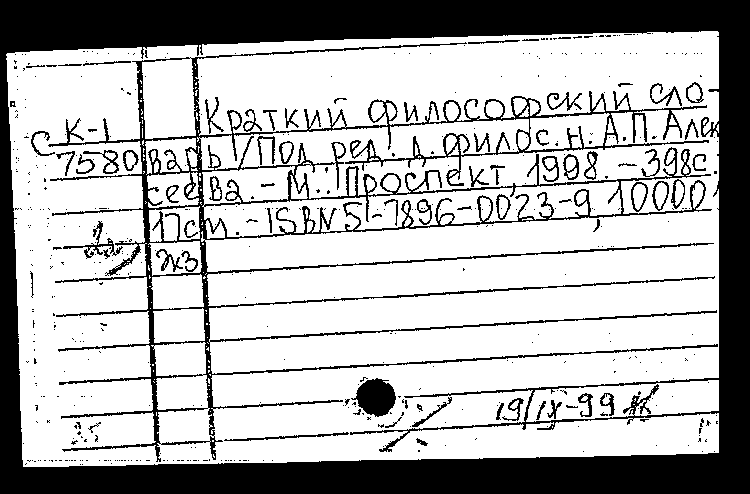 Краткий философский сло-
С К-1
7580 варь /Под ред. д.филос.н. А.П.Алек
сеева. - М.: Проспект, 1998. - 398с.
17см. - ISBN 5-7896-0023-9, 10000
экз
19/IX-99